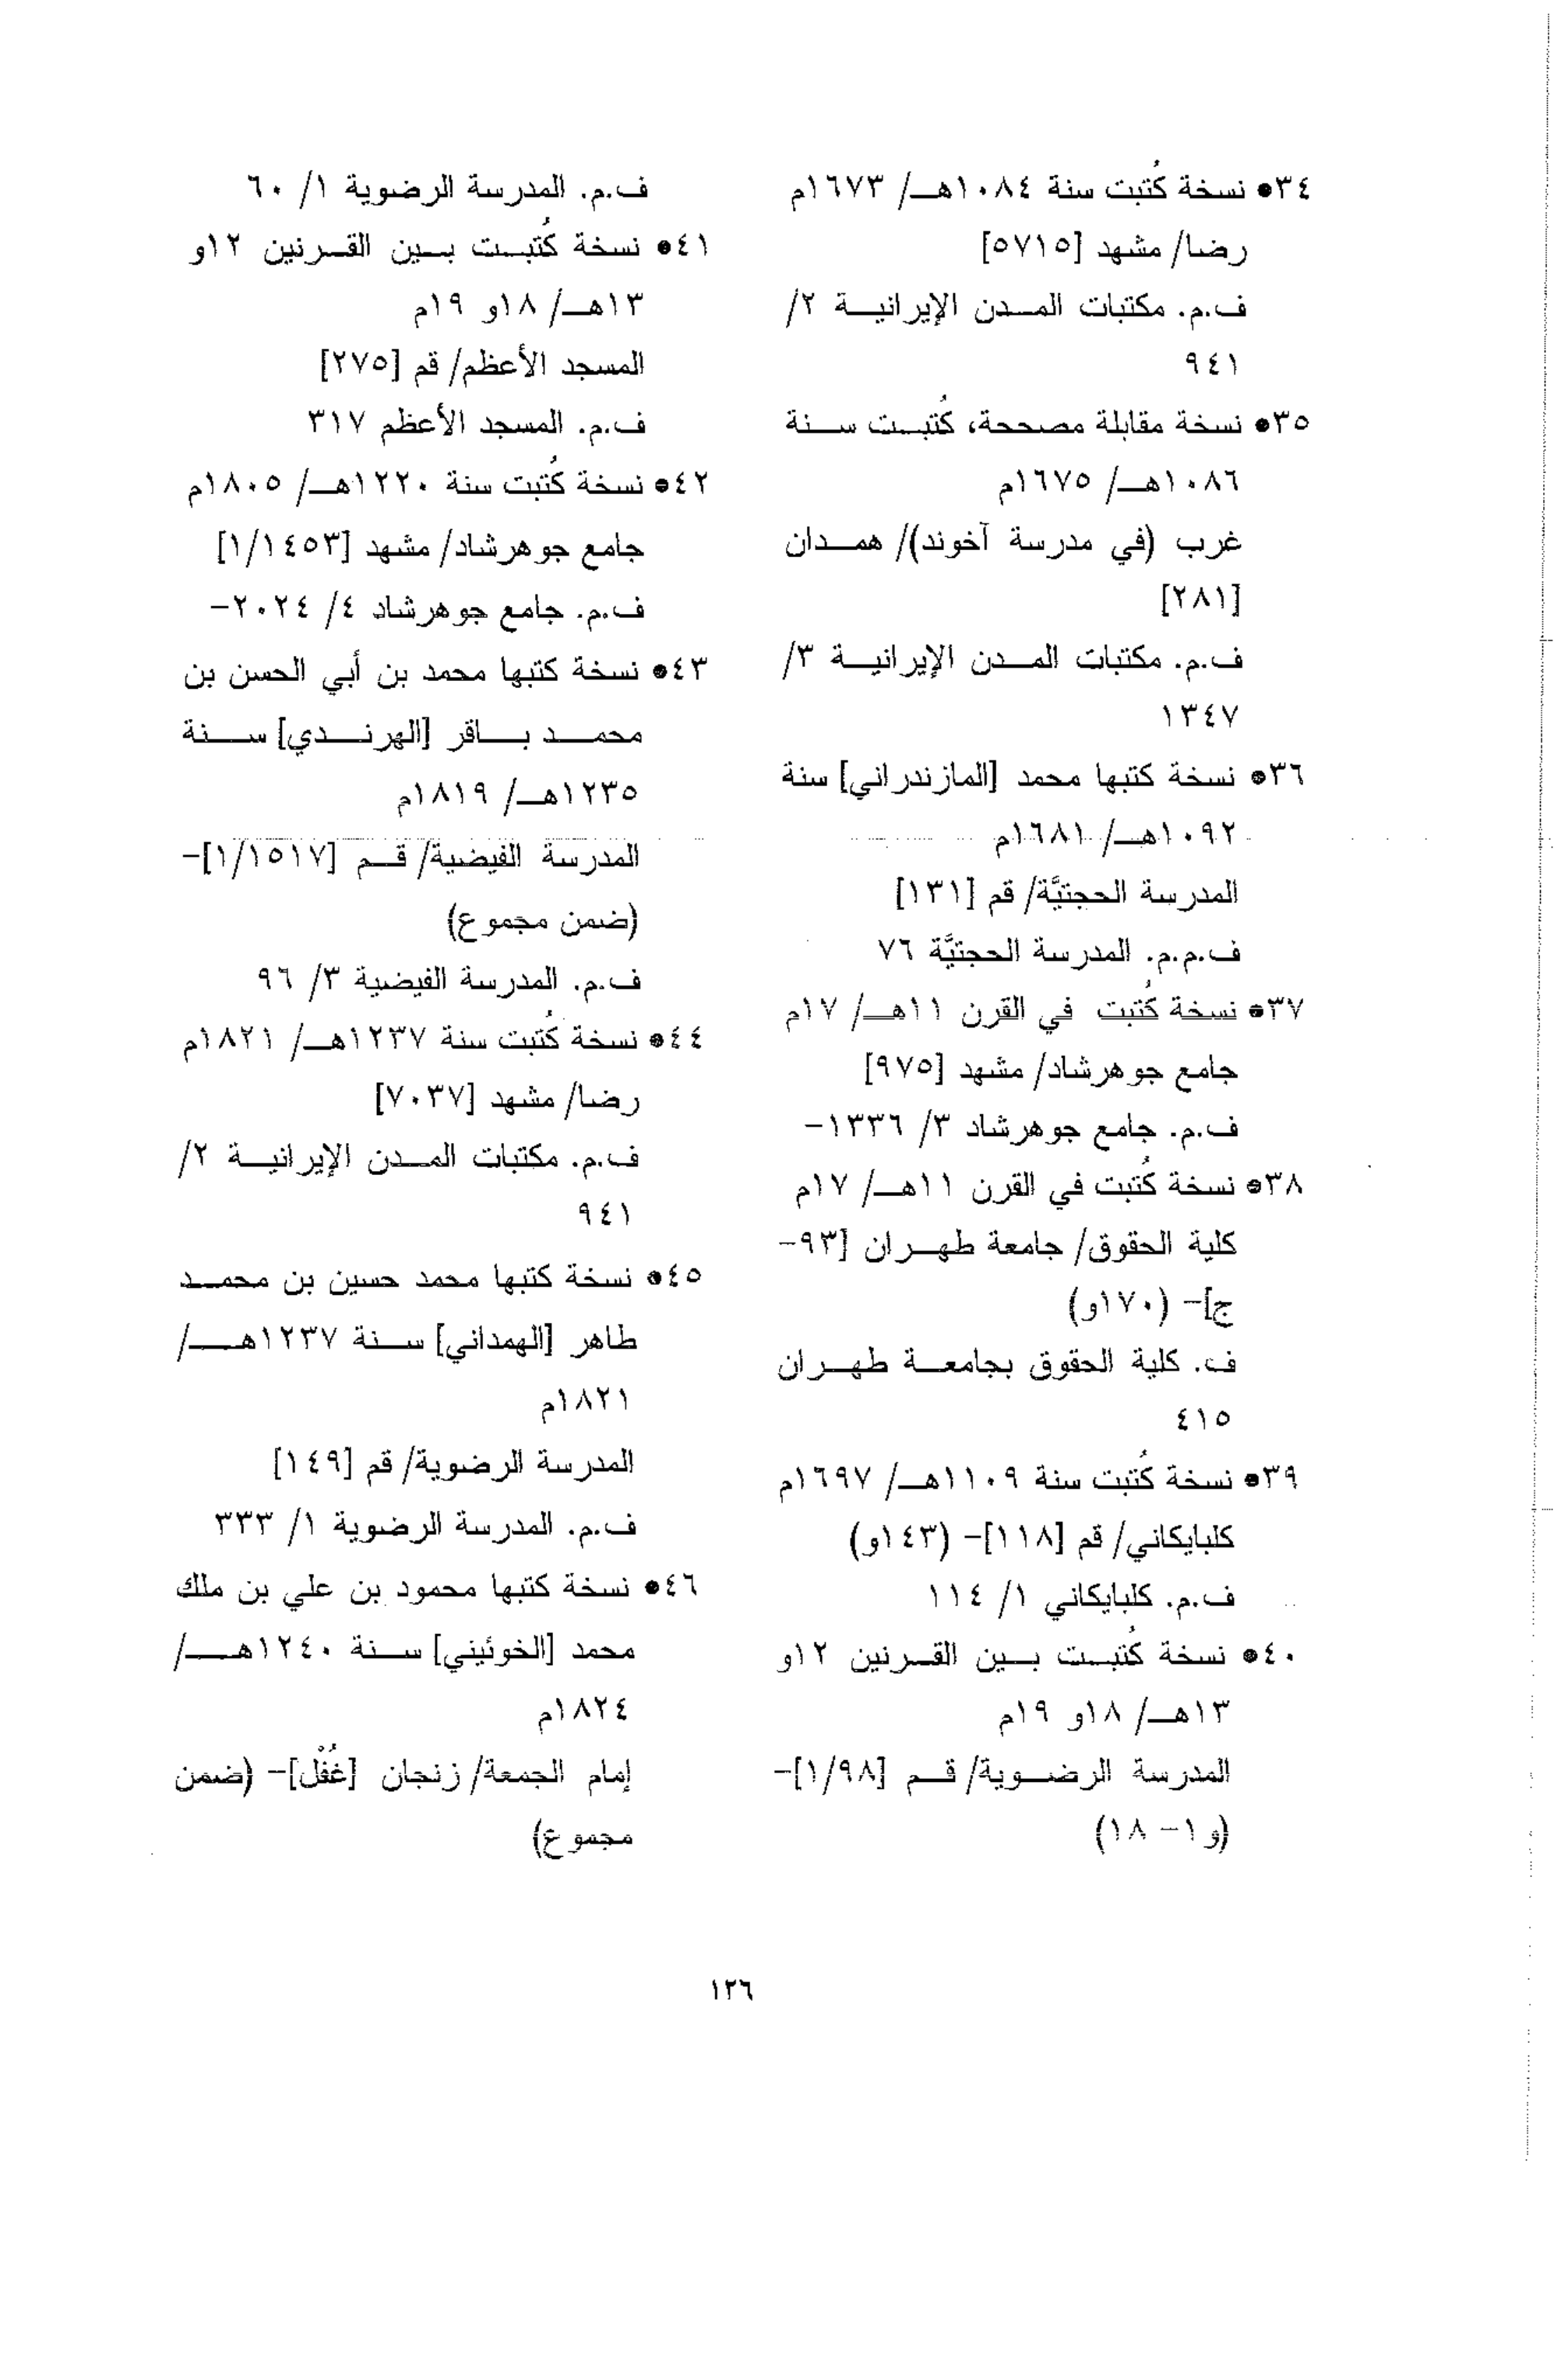 ٣٤• نسخة كُتبت سنة ١٠٨٤هـ/ ١٦٧٣م
رضا/ مشهد [٥٧١٥]
ف.م. مكتبات المدن الإيرانية ٢/
٩٤١
٣٥• نسخة مقابلة مصححة، كُتبت سنة
١٠٨٦هـ/ ١٦٧٥م
غرب (في مدرسة آخوند)/ همدان
[٢٨١]
ف.م. مكتبات المدن الإيرانية ٣/
١٣٤٧
٣٦• نسخة كتبها محمد [المازندراني] سنة
١٠٩٢هـ/ ١٦٨١م
المدرسة الحجتيَّة/ قم [١٣١]
ف.م.م. المدرسة الحجتيَّة ٧٦
٣٧• نسخة كُتبت في القرن ١١هـ/ ١٧م
جامع جوهرشاد/ مشهد [٩٧٥]
ف.م. جامع جوهرشاد ٣/ ١٣٣٦-
٣٨• نسخة كُتبت في القرن ١١هـ/ ١٧م
كلية الحقوق/ جامعة طهران [٩٣-
ج]- (١٧٠و)
ف. كلية الحقوق بجامعة طهران
٤١٥
٣٩• نسخة كُتبت سنة ١١٠٩هـ/ ١٦٩٧م
كلبايكاني/ قم [١١٨]- (١٤٣و)
ف.م. كلبايكاني ١/ ١١٤
٤٠• نسخة كُتبت بين القرنين ١٢و
١٣هـ/ ١٨و ١٩م
المدرسة الرضوية/ قم [١/٩٨]-
(و١- ١٨)
ف.م. المدرسة الرضوية ١/ ٦٠
٤١• نسخة كُتبت بين القرنين ١٢و
١٣هـ/ ١٨و ١٩م
المسجد الأعظم/ قم [٢٧٥]
ف.م. المسجد الأعظم ٣١٧
٤٢• نسخة كُتبت سنة ١٢٢٠هـ/ ١٨٠٥م
جامع جوهرشاد/ مشهد [١/١٤٥٣]
ف.م. جامع جوهرشاد ٤/ ٢٠٢٤-
٤٣• نسخة كتبها محمد بن أبي الحسن بن
محمد باقر [الهرندي] سنة
١٢٣٥هـ/ ١٨١٩م
المدرسة الفيضية/ قم [١/١٥١٧]-
(ضمن مجموع)
ف.م. المدرسة الفيضية ٣/ ٩٦
٤٤• نسخة كُتبت سنة ١٢٣٧هـ/ ١٨٢١م
رضا/ مشهد [٧٠٣٧]
ف.م. مكتبات المدن الإيرانية ٢/
٩٤١
٤٥• نسخة كتبها محمد حسين بن محمد
طاهر [الهمداني] سنة ١٢٣٧هـ/
١٨٢١م
المدرسة الرضوية/ قم [١٤٩]
ف.م. المدرسة الرضوية ١/ ٣٣٣
٤٦• نسخة كتبها محمود بن علي بن ملك
محمد [الخوئيني] سنة ١٢٤٠هـ/
١٨٢٤م
إمام الجمعة/ زنجان [غُفْل]- (ضمن
مجموع)
١٢٦